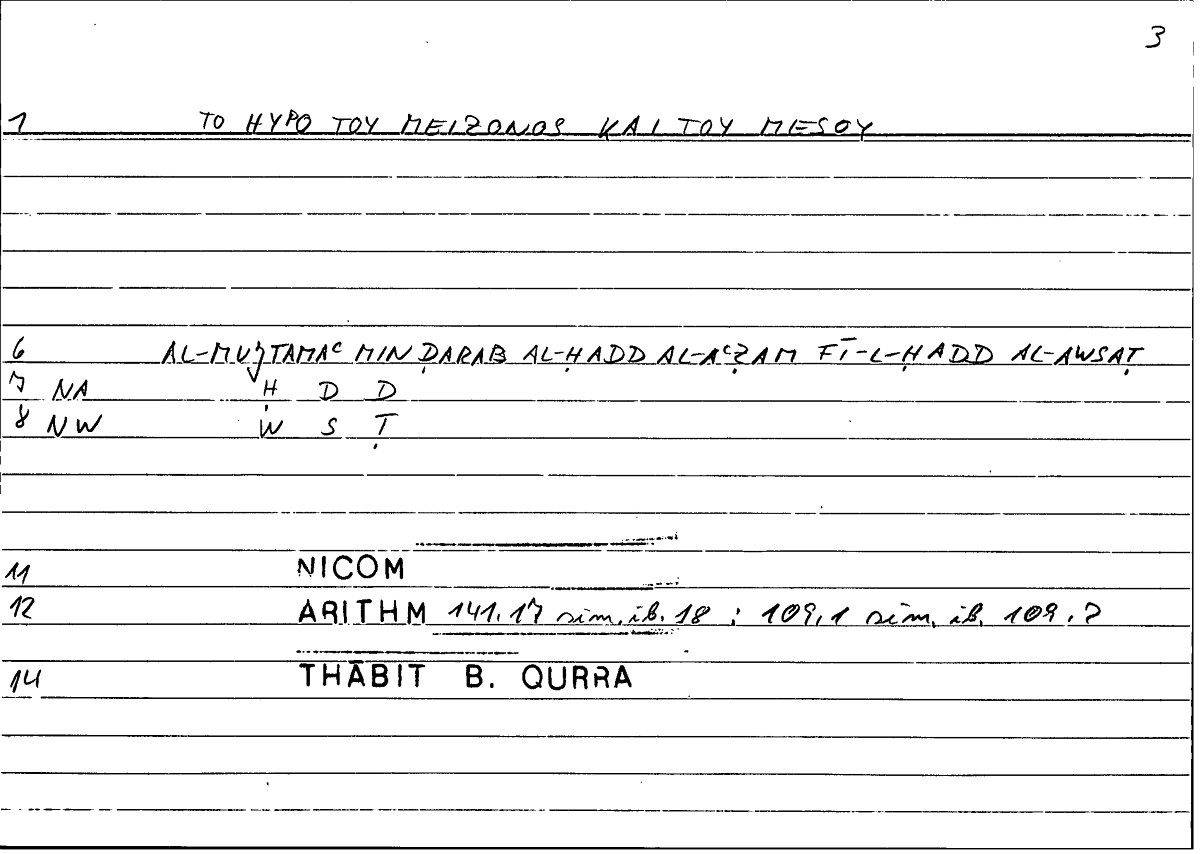 3
1 TO HYPO TOY MEIZONOS KAI TOY MESOY
6 AL-MUǦTAMAʿ MIN ḌARAB AL-ḤADD AL-AʿẒAM FĪ-L-ḤADD AL-AWSAṬ
7 NA Ḥ D D
8 NW W S Ṭ
11 NICOM
12 ARITHM 141.17 sim. ib. 18 ; 109,1 sim. ib. 109.2
14 THĀBIT B. QURRA